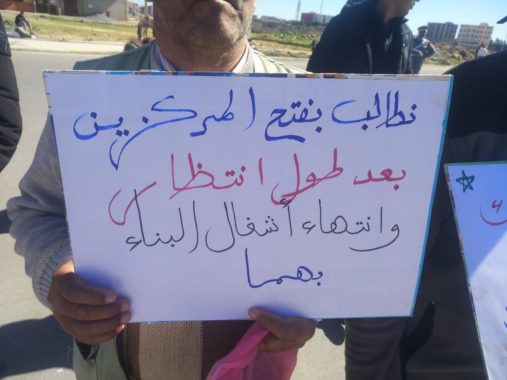 نطالب بفتح المركزين
بعد طول انتظار
وانتهاء أشغال البناء
بهما